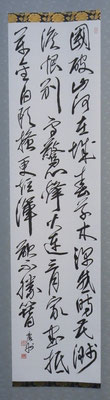 國破山河在城春草木深感時花濺
淚恨別鳥驚心烽火連三月家書抵
萬金白頭搔更短渾欲不勝簪